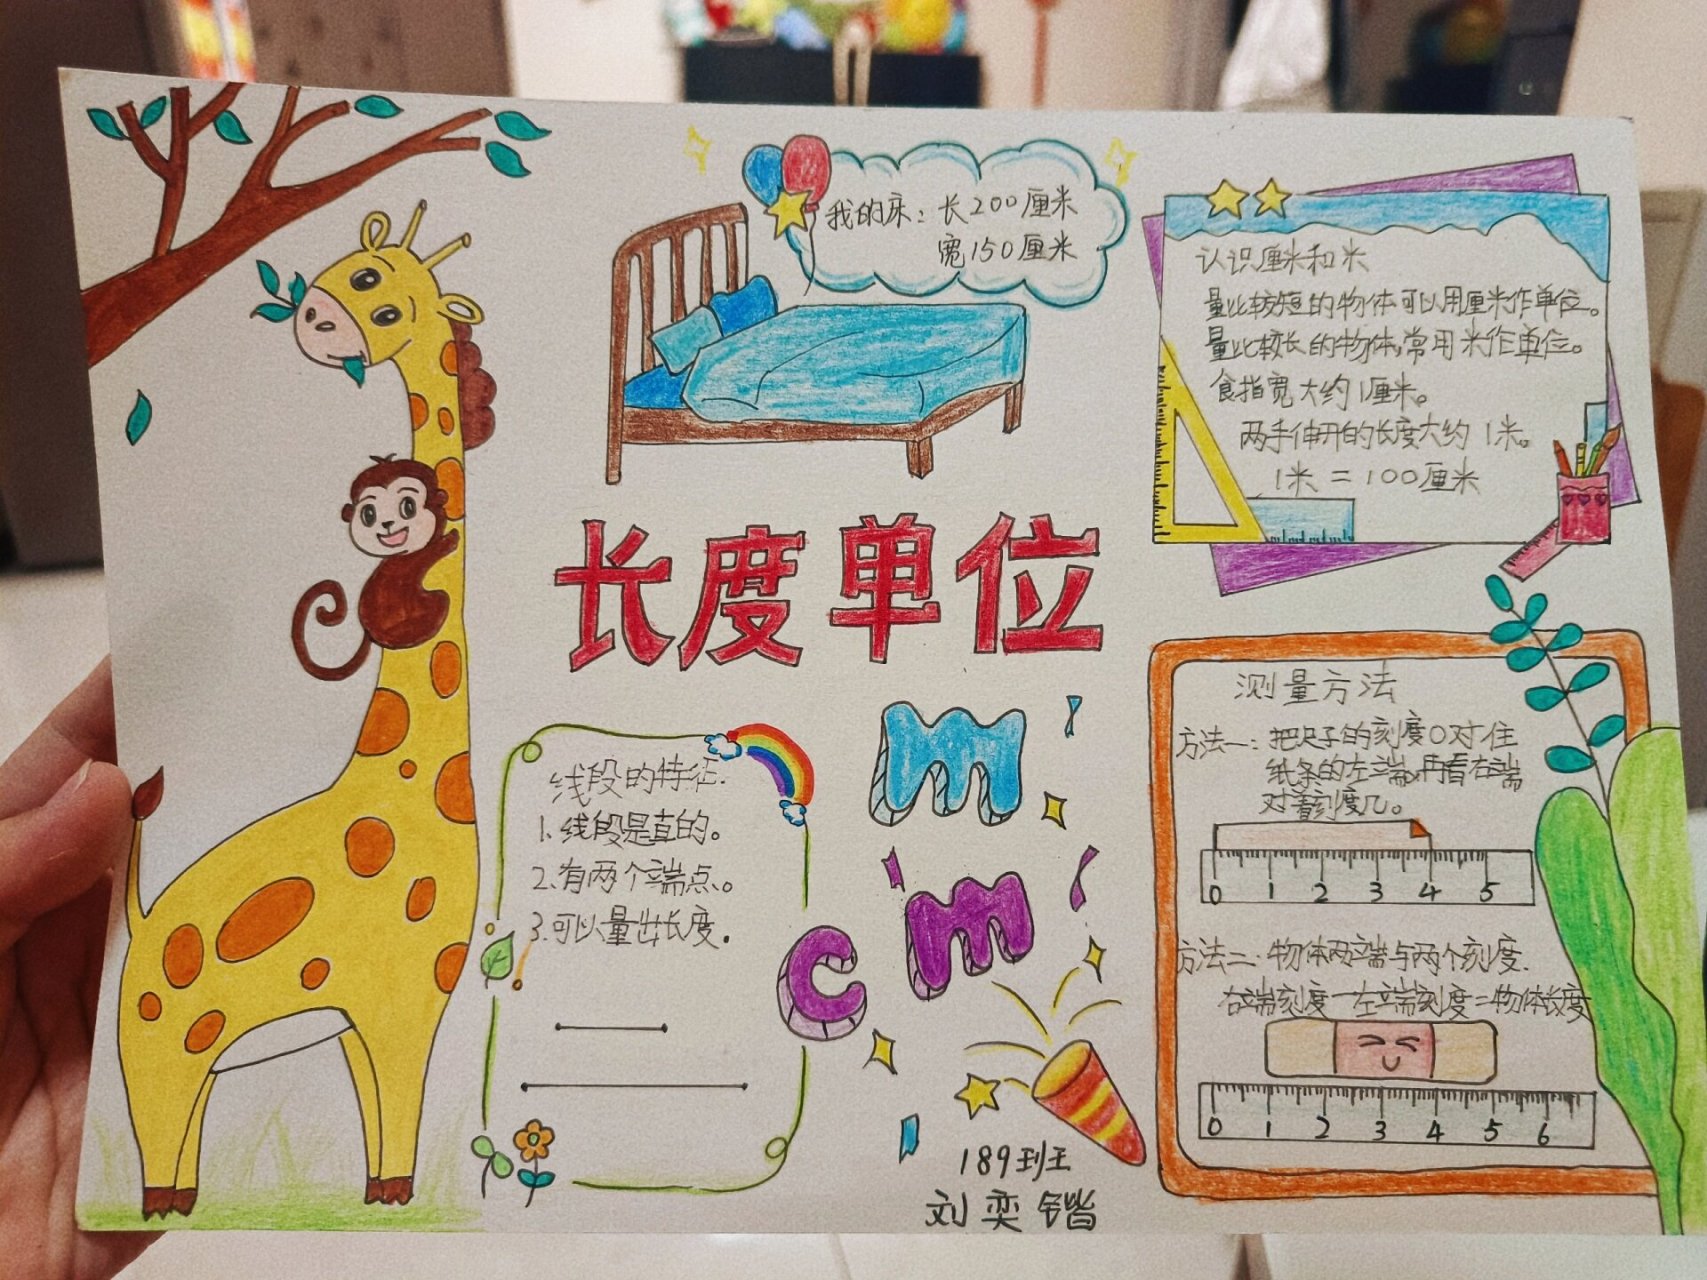 我的床：长200厘米
宽150厘米
认识厘米和米
量比较短的物体可以用厘米作单位。
量比较长的物体，常用米作单位。
食指宽大约1厘米。
两手伸开的长度大约1米。
1米＝100厘米
长度单位
m
cm
线段的特征.
1.线段是直的。
2.有两个端点。
3.可以量出长度.
测量方法
方法一：把尺子的刻度0对住
纸条的左端,再看右端
对着刻度几。
0 1 2 3 4 5
方法二.物体两端与两个刻度.
右端刻度一左端刻度=物体长度
0 1 2 3 4 5 6
189班王
刘奕锴